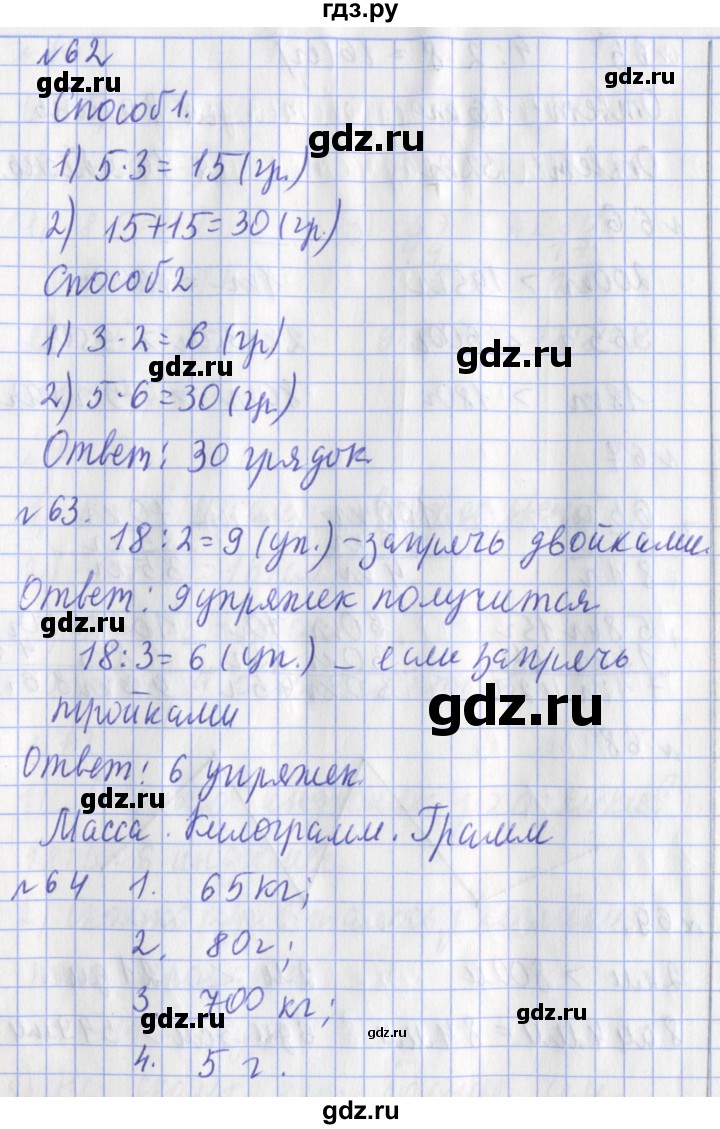 гдз.ру
№62
gdz.ru
gdz.ru
Способ 1.
gdz.ru
1) 5·3=15(гр.)
gdz.ru
2) 15+15=30(гр.)
Способ 2
1) 3·2=6(гр)
gdz.ru
gdz.ru
2) 5·6=30(гр.)
Ответ: 30 грядок
gdz.ru
№63.
18:2=9(уп.)-запрячь двойками.
Ответ: 9 упряжек получится
gdz.ru
18:3=6(уп.) – если запрячь
gdz.ru
тройками
Ответ: 6 упряжек.
gdz.ru
Масса. Килограмм. Грамм
№64 1. 65кг;
2. 80г;
3. 700 кг;
gdz.ru
gdz.ru
gdz.ru
4. 5 г.
gdz.ru